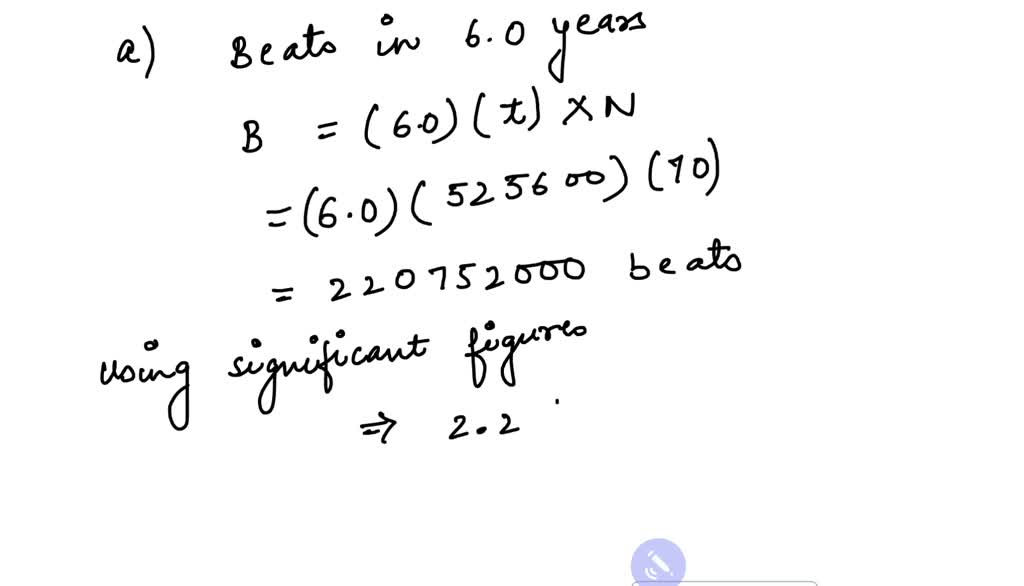 a) Beats in 6.0 years
B = (6.0) (t) × N
= (6.0) ( 525600) (70)
= 220752000 beats
using significant figures
⇒ 2.2